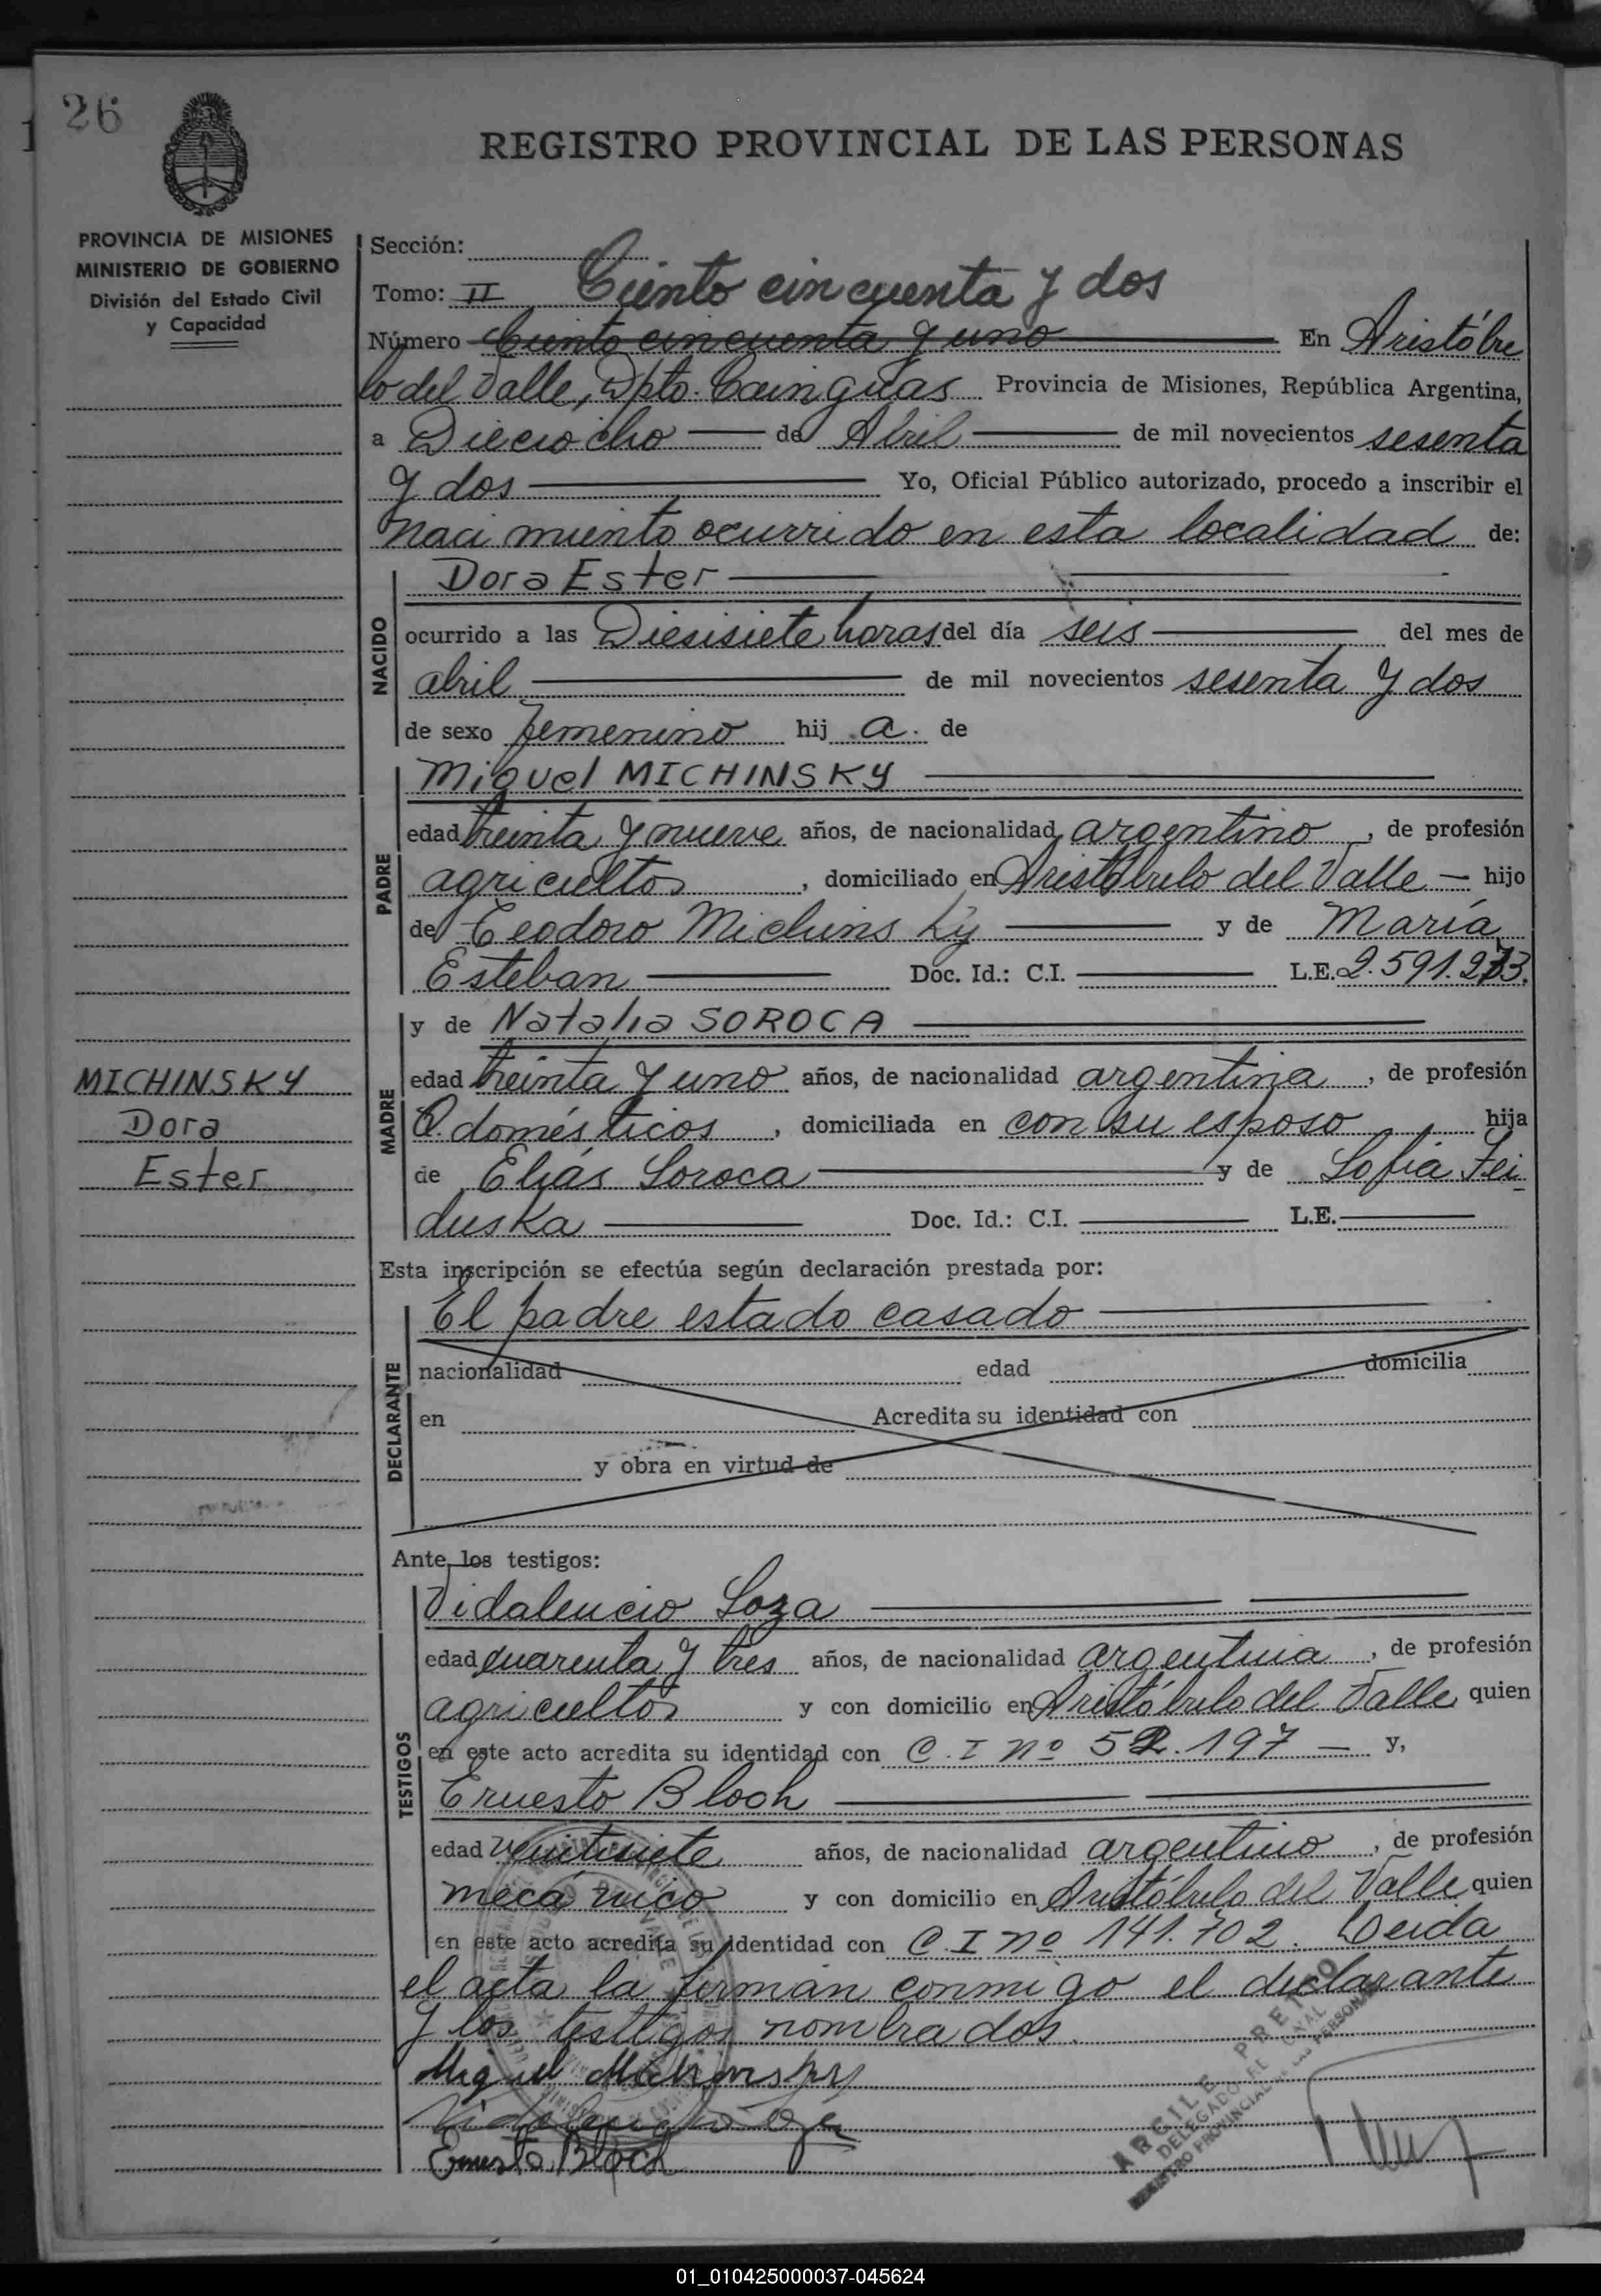 26
REGISTRO PROVINCIAL DE LAS PERSONAS
PROVINCIA DE MISIONES
MINISTERIO DE GOBIERNO
División del Estado Civil
y Capacidad
Sección:
Tomo: II Ciento cincuenta y dos
Número Ciento cincuenta y uno En Aristóbu
lo del Valle, Dpto. Cainguas Provincia de Misiones, República Argentina,
a Dieciocho de Abril de mil novecientos sesenta
y dos Yo, Oficial Público autorizado, procedo a inscribir el
nacimiento ocurrido en esta localidad de:
NACIDO
Dora Ester
ocurrido a las Diesisiete horas del día seis del mes de
abril de mil novecientos sesenta y dos
de sexo femenino hij a. de
PADRE
Miguel MICHINSKY
edad treinta y nueve años, de nacionalidad argentino, de profesión
agricultor, domiciliado en Aristóbulo del Valle — hijo
de Teodoro Michinsky y de María
Esteban Doc. Id.: C.I. L.E.
MADRE
y de Natalia SOROCA
edad treinta y uno años, de nacionalidad argentina, de profesión
Q. domésticos, domiciliada en con su esposo hija
de Elías Soroca y de Sofia Fei
duska Doc. Id.: C.I. L.E.
MICHINSKY
Dora
Ester
Esta inscripción se efectúa según declaración prestada por:
DECLARANTE
El padre estado casado
nacionalidad edad domicilia
en Acredita su identidad con
y obra en virtud de
Ante los testigos:
TESTIGOS
Vidalencio Soza
edad cuarenta y tres años, de nacionalidad argentina, de profesión
agricultor y con domicilio en Aristóbulo del Valle quien
en este acto acredita su identidad con C.I nº 52.197 — y,
Ernesto Bloch
edad veintisiete años, de nacionalidad argentino, de profesión
mecánico y con domicilio en Aristóbulo del Valle quien
en este acto acredita su identidad con C.I nº 141.702. Leida
el acta la firman conmigo el declarante
y los testigos nombrados.
Miguel Michinsky
Ernesto Bloch
DELEGADO
REGISTRO PROVINCIAL DE LAS PERSONAS
01_010425000037-045624